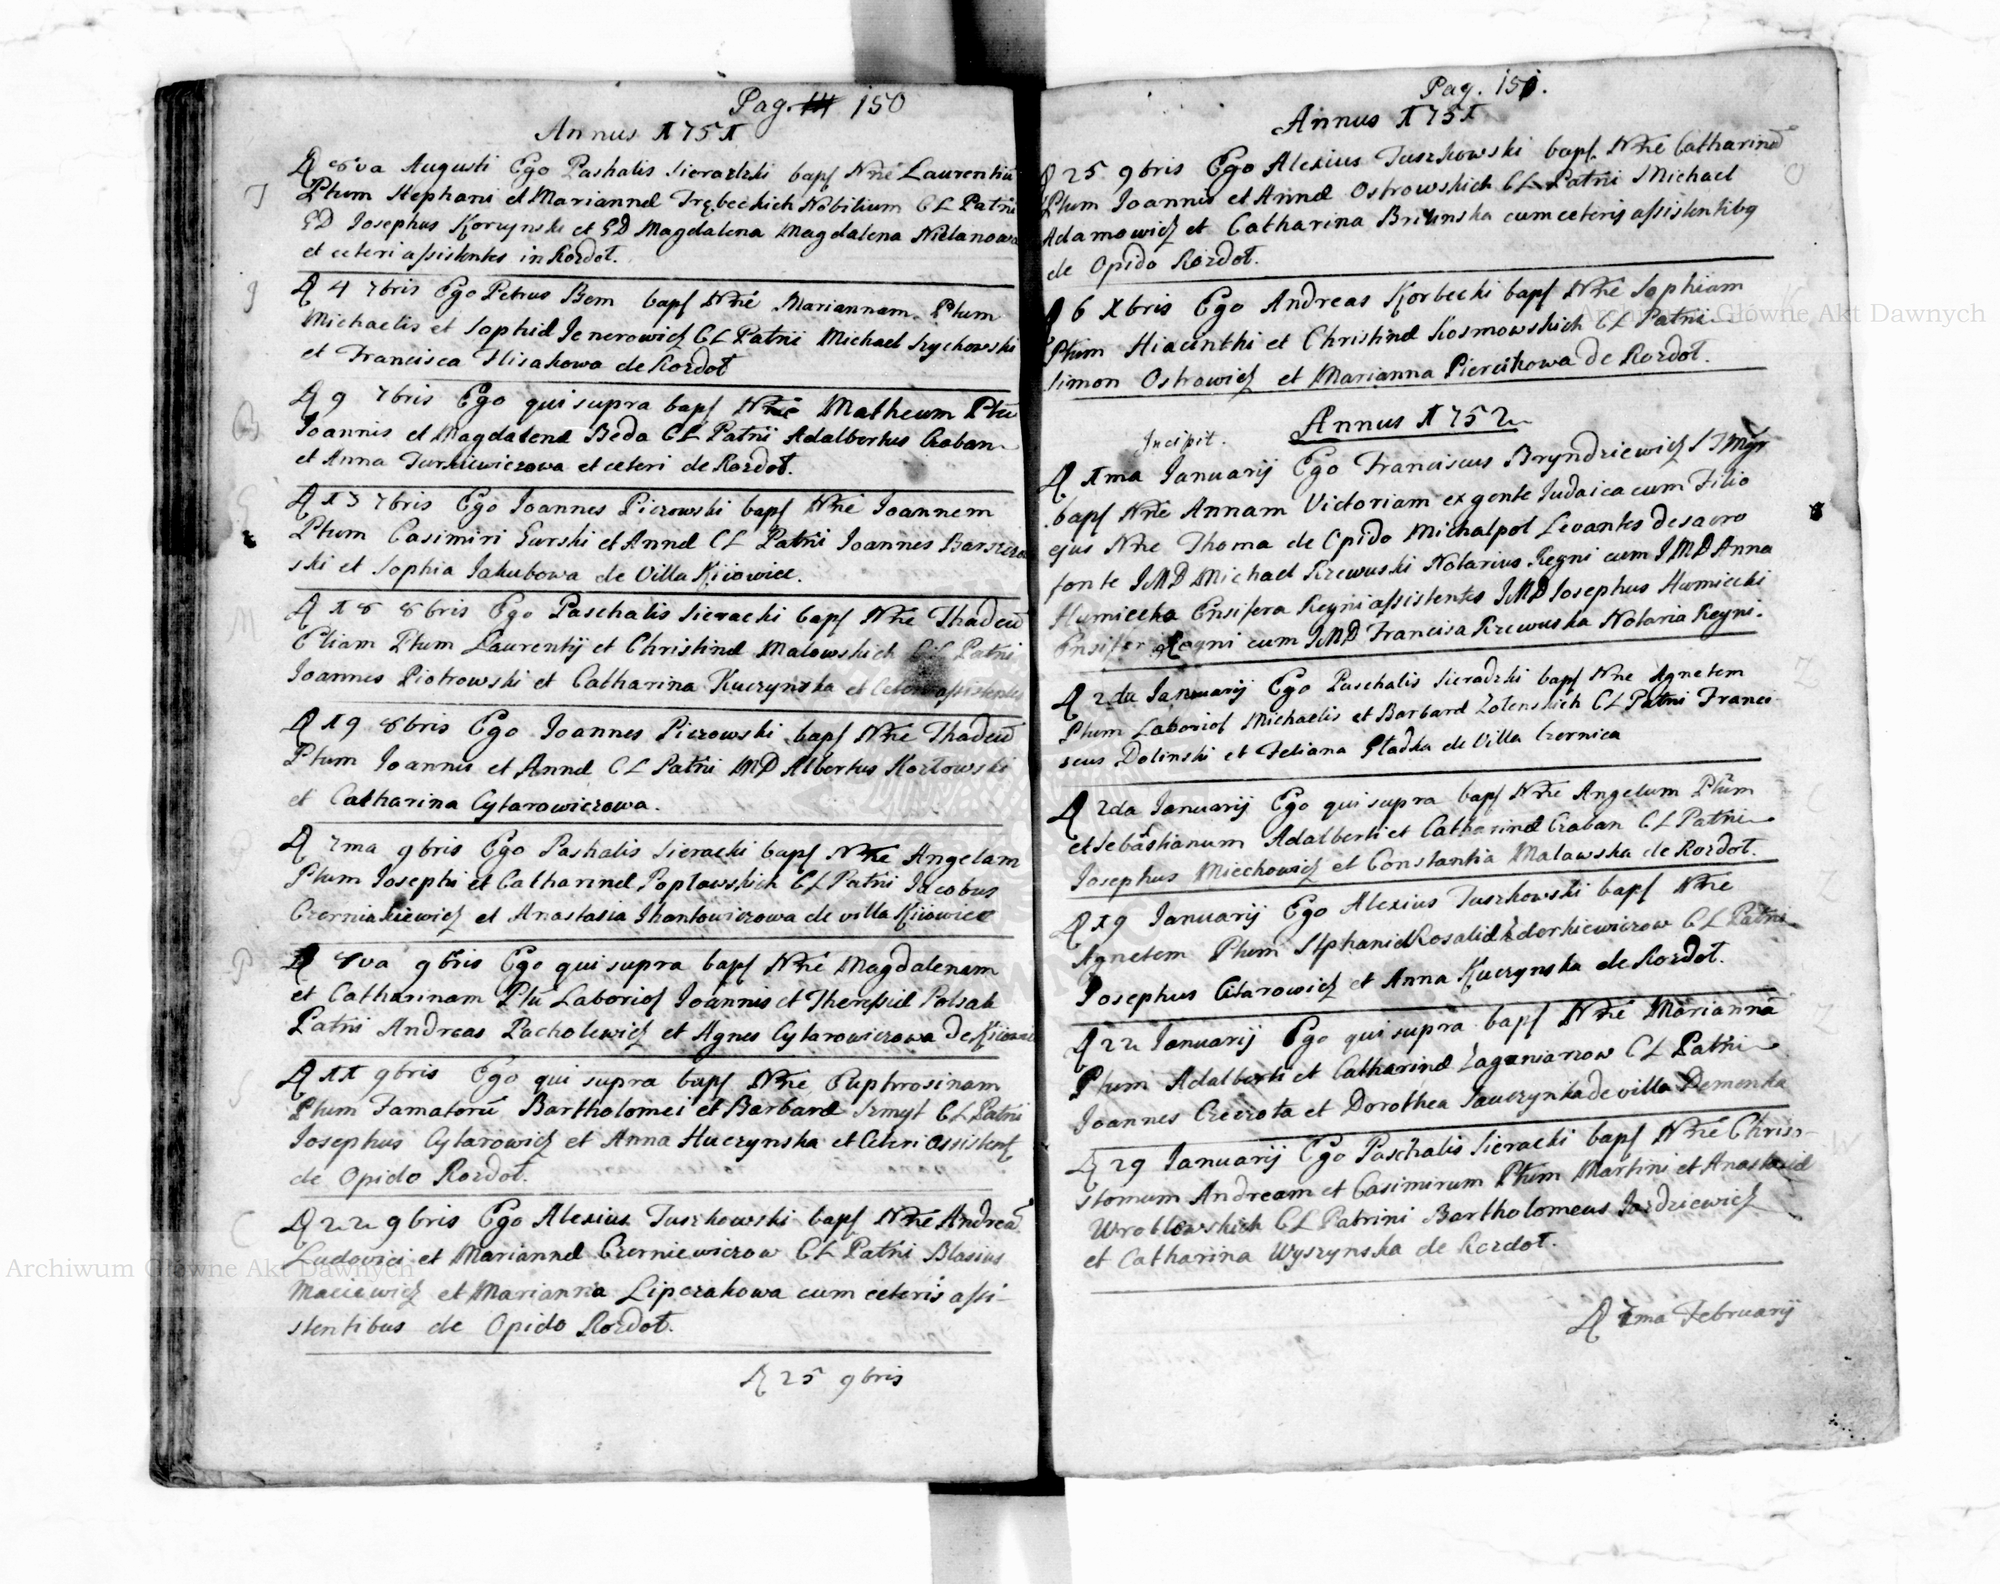 Pag. 150
Annus 1751
D 8va Augusti Ego Paschalis Sieradzki bapt Nrē Laurentiū
Pltum Stephani et Mariannæ Trębeckich Nobilium CL Patrii
GD Josephus Korzynski et GD Magdalena Magdalena Nielanowa
et ceteri assistentes in Rozdoł.
D 4 7bris Ego Petrus Bem bapt Nrē Mariannam Pltum
Michaelis et Sophiæ Jenerowicz CL Patrii Michael Szychowski
et Francisca Slisakowa de Rozdoł
D 9 7bris Ego qui supra bapt Nrē Matheum Pltū
Joannis et Magdalenæ Beda CL Patrii Adalbertus Czaban
et Anna Turkiewiczowa et ceteri de Rozdoł.
D 13 7bris Ego Joannes Pierowski bapt Nrē Joannem
Pltum Casimiri Gurski et Annæ CL Patrii Joannes
ski et Sophia Jakubowa de Villa Kiiowiec.
D 18 8bris Ego Paschalis Sieracki bapt Nrē Thadeū
Etiam Pltum Laurentij et Christinæ Malowskich CL Patrii
Joannes Piotrowski et Catharina Kuczynska et Ceteri assistentes
D 19 8bris Ego Joannes Pierowski bapt Nrē Thadeū
Pltum Joannis et Annæ CL Patrii MD Albertus Kozłowski
et Catharina Cytarowiczowa.
D 7ma 9bris Ego Pashalis Sieracki bapt Nrē Angelam
Pltum Josephi et Catharinæ Popławskich CL Patrii Jacobus
Czerniakiewicz et Anastasia Ihantowiczowa de villa Kiiowiec
D 8va 9bris Ego qui supra bapt Nrē Magdalenam
et Catharinam Pltū Laborios Joannis et Theresiæ Polsak
Patrii Andreas Pacholewicz et Agnes Cytarowiczowa de Kiiowiec
D 11 9bris Ego qui supra bapt Nrē Euphrosinam
Pltum Famatorū Bartholomei et Barbaræ Szmyt CL Patrii
Josephus Cytarowicz et Anna Huczynska et Ceteri assistent
de Opido Rozdoł.
D 22 9bris Ego Alexius Tuszkowski bapt Nrē Andreā
Ludovici et Mariannæ Czerniewiczow CL Patrii Blasius
Maciewicz et Marianna Lipczakowa cum ceteris assi-
stentibus de Opido Rozdoł.
D 25 9bris
Pag. 151.
Annus 1751
D 25 9bris Ego Alexius Tuszkowski bapt Nrē Catharinā
Pltum Joannis et Annæ Ostrowskich CL Patrii Michael
Adamowicz et Catharina Briunska cum ceteris assistentibq
de Opido Rozdoł.
D 6 Xbris Ego Andreas Korbecki bapt Nrē Sophiam
Pltum Hiacinthi et Christinæ Kosmowskich CL Patrii
Simon Ostrowicz et Marianna Piercikowa de Rozdoł.
Incipit. Annus 1752
D 1ma Januarij Ego Franciscus Bryndziewicz
bapt Nrē Annam Victoriam ex gente Judaica cum Filio
ejus Nrē Thoma de Opido Michalpol Levantes de sacro
fonte IMD Michael Rzewuski Notarius Regni cum IMD Anna
Humiecka Ensifera Regni assistentes IMD Josephus Humiecki
Ensifer Regni cum IMD Francisa Rzewuska Notaria Regni.
D 2da Januarij Ego Paschalis Sieradzki bapt Nrē Agnetem
Pltum Laborios Michaelis et Barbaræ Zotenskich CL Patrii Franci-
scus Dolinski et Feliana Gładka de Villa Czernica
D 2da Januarij Ego qui supra bapt Nrē Angelum Pltum
et Sebastianum Adalberti et Catharinæ Czaban CL Patrii
Josephus Miechowicz et Constantia Malawska de Rozdoł.
D 19 Januarij Ego Alexius Tuszkowski bapt Nrē
Agnetem Pltum Stphani et Rosaliæ Zdorkiewiczow CL Patrii
Josephus Citarowicz et Anna Kuczynska de Rozdoł.
D 22 Januarij Ego qui supra bapt Nrē Mariannā
Pltum Adalberti et Catharinæ Zaganiarzow CL Patrii
Joannes Czeczota et Dorothea Sawczynka de villa Demenka
D 29 Januarij Ego Paschalis Sieracki bapt Nrē Chriso-
stomum Andream et Casimirum Pltum Martini et Anastasiæ
Wroblowskich CL Patrini Bartholomeus Jazdziewicz
et Catharina Wyszynska de Rozdoł.
D 7ma Februarij
Archiwum Główne Akt Dawnych
Archiwum Główne Akt Dawnych